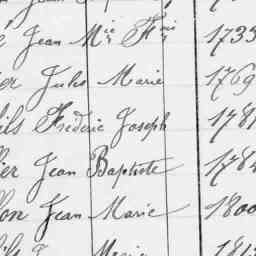 Jean Mie Fois 1733
er Jules Marie 1769
ils Frédéric Joseph 178
ier Jean Baptiste 1784
lon Jean Marie 1800
Marie 181